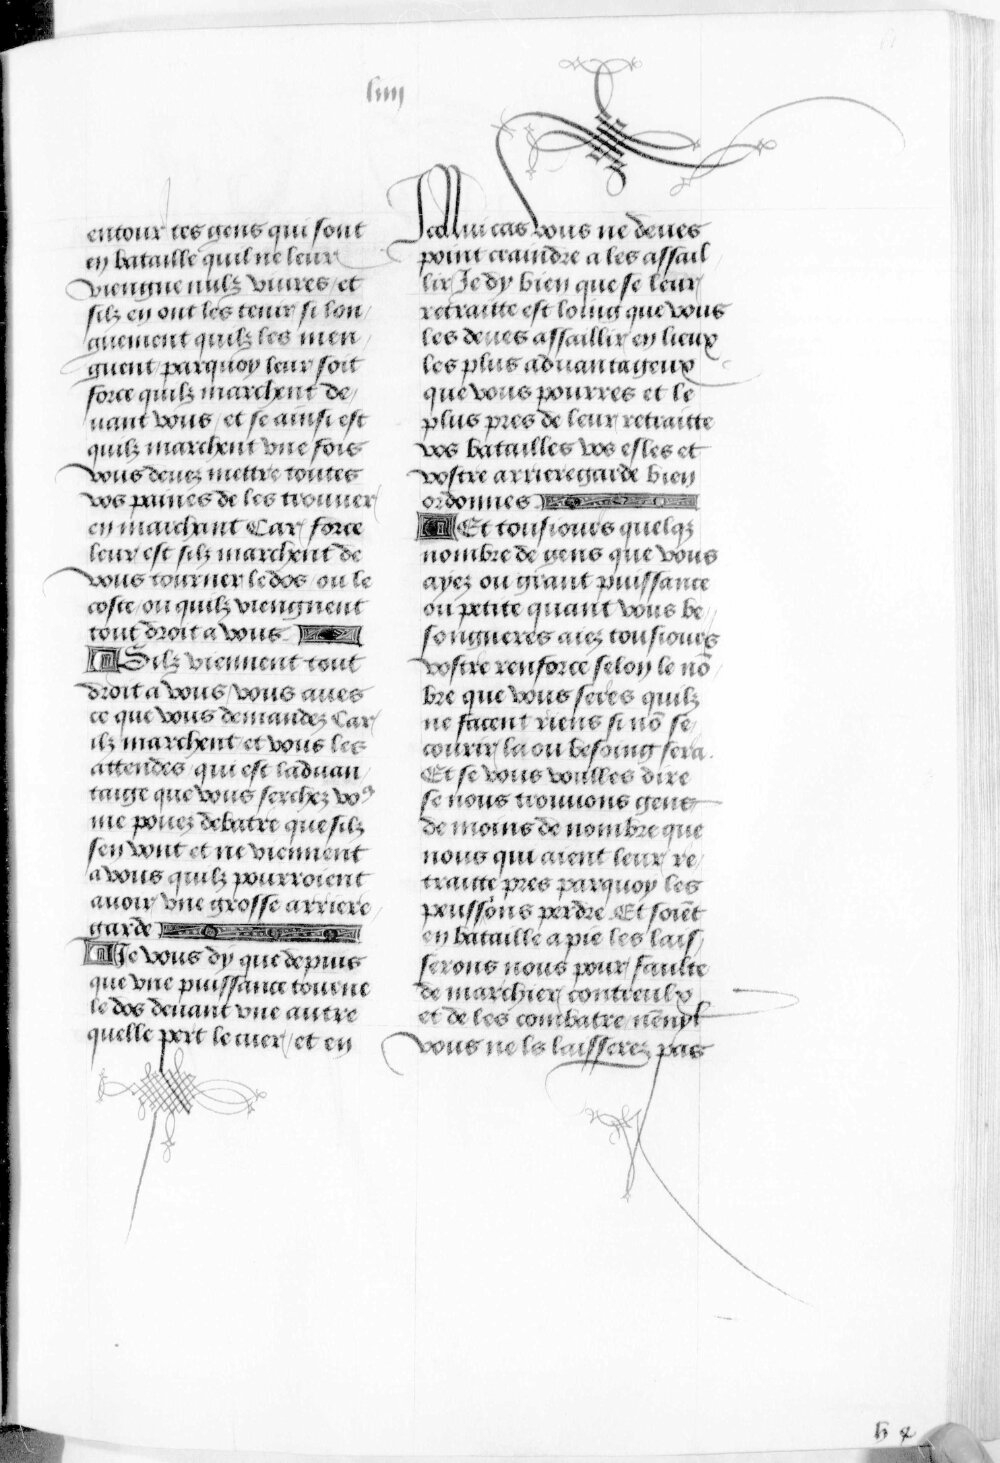 liiij
entour tes gens qui sont
en bataille quil ne leur
viengne nulz viures / et
silz en ont les tenir si lon /
guement quilz les men /
guent / parquoy leur soit
force quilz marchent de /
uant vous / et se ainsi est
quilz marchent vne fois
vous deuez mettre toutes
vos paines de les trouuer
en marchant Car force
leur est silz marchent de
vous tourner le dos / ou le
coste / ou quilz viengnent
tout droit a vous
Silz viennent tout
droit a vous / vous aues
ce que vous demandez Car
ilz marchent et vous les
attendes / qui est laduan /
taige que vous serchez voꝰ
me pouez debatre que silz
sen vont et ne viennent
a vous quilz pourroient
auoir vne grosse arriere /
garde
Je vous dy que depuis
que vne puissance tourne
le dos deuant vne autre
quelle pert le cuer / et en
cas vous ne deues
point craindre a les assail /
lir Je dy bien que se leur
retraitte est loing que vous
les deues assaillir en lieux
les plus aduantageux
que vous pourres et le
plus pres de leur retraitte
vos batailles vos esles et
vostre arrieregarde bien
ordonnes
Et tousiours quelqz
nombre de gens que vous
ayez ou grant puissance
ou petite quant vous be /
songneres aiez tousiours
vostre renforce selon le nō /
bre que vous seres quilz
ne facent riens si nō se /
courir la ou besoing sera.
Et se vous voulles dire
se nous trouuons gens
de moins de nombre que
nous qui aient leur re /
traitte pres parquoy les
peussōns perdre Et soiēt
en bataille a pie les lais /
serons nous pour faulte
de marchier contreulx
et de les combatre / nēnyl
vous ne ls laisserez pas
h 4